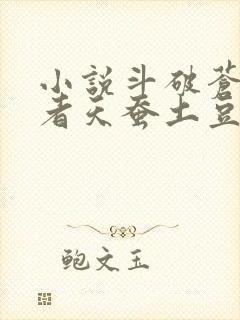 小說斗破蒼
者天蚕土豆
鲍文玉